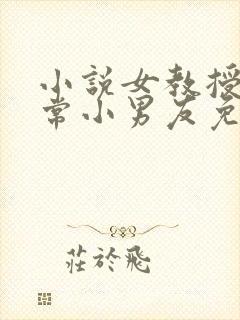 小説女教授
常小男友免
莊於飛